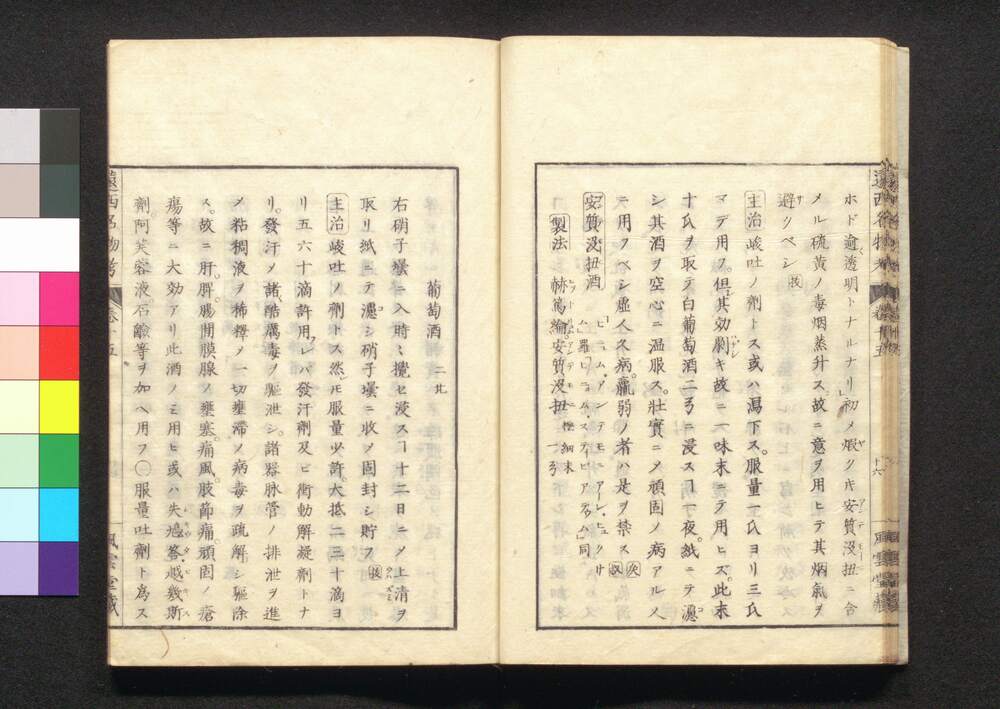 ホド逾透明トナルナリ」初メ煆クキ安質没扭ニ含
メル硫黄ノ毒烟蒸升ス故ニ意ヲ用ヒテ其烟氣ヲ
避クベシ
主治 峻吐ノ劑トス或ハ瀉下ス服量一氏ヨリ三氏
マデ用フ但其効劇キ故ニ一味末ニテ用ヒス此末
十氏ヲ取テ白葡萄酒二弓ニ浸スヿ一夜紙ニテ濾
シ其酒ヲ空心ニ温服ス壯實ニメ頑固ノ病アル人
ニ用フベシ虚人久病羸弱ノ者ハ是ヲ禁ス
安質没扭酒
製法 赫篤綸安質没扭 極細末 一弓
十六
遠西名物考 巻十五
葡萄酒 二廿
右硝子壜ニ入時々攪セ浸スヿ十二日ニメ上清ヲ
取リ紙ニテ濾シ硝子壜ニ收メ固封シ貯フ
主治 峻吐ノ劑トス然モ服量少許大抵二三十滴ヨ
リ五六十滴許用フレバ發汗劑及ビ衝動解凝劑トナ
リ發汗メ諸酷厲毒ヲ驅泄シ諸器脉管ノ排泄ヲ進
メ粘稠液ヲ稀釋メ一切壅滞ノ病毒ヲ疏解シ驅除
ス故ニ肝脾腸間膜腺ノ壅塞痛風肢節痛頑固ノ瘡
瘍等ニ大効アリ此酒ノミ用ヒ或ハ失鳩答越幾斯
劑阿芙蓉液石鹼等ヲ加ヘ用フ〇服量吐劑ト爲ス
遠西名物考 巻十五 風雲堂藏